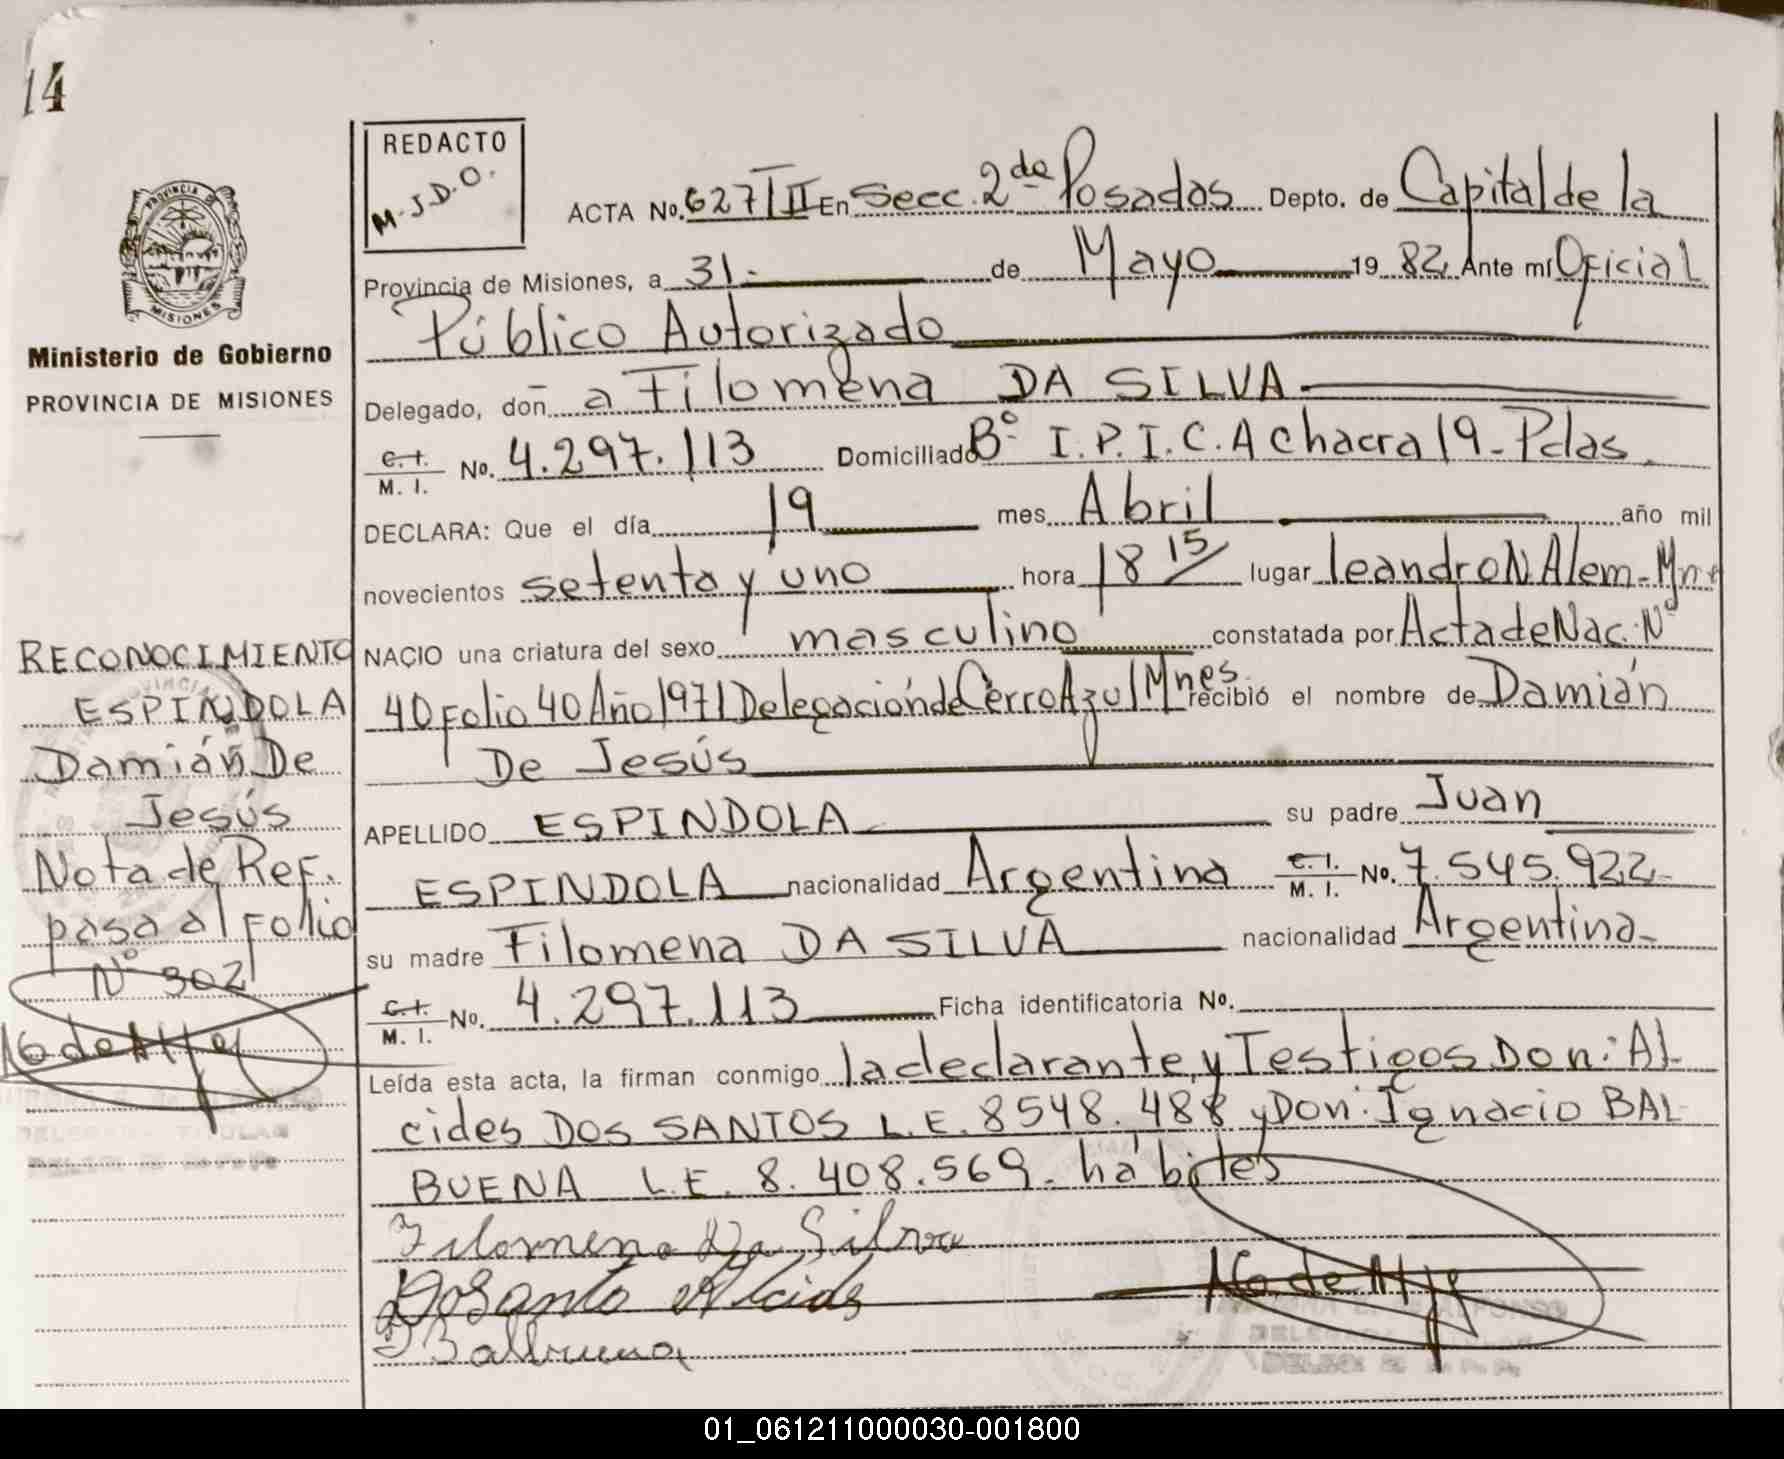 14
REDACTO
M.J.D.O.
PROVINCIA
MISIONES
Ministerio de Gobierno
PROVINCIA DE MISIONES
ACTA No. 627 T II En Secc. 2da Posadas Depto. de Capital de la
Provincia de Misiones, a 31.- de Mayo 19 82 Ante mí Oficial
Público Autorizado
Delegado, doñ a Filomena DA SILVA.-
C.I. M. I. No. 4.297.113 Domiciliado Bº I.P.I.C.A chacra 19-Pdas.
DECLARA: Que el día 19 mes Abril año mil
novecientos setenta y uno hora 18 15 lugar leandro N Alem-Mnes
NACIO una criatura del sexo masculino constatada por Acta de Nac. Nº
40 Folio 40 Año 1971 Delegación de Cerro Azul Mnes. recibió el nombre de Damián
De Jesús
APELLIDO ESPINDOLA su padre Juan
ESPINDOLA nacionalidad Argentina C.I. M. I. No. 7.545.922-
su madre Filomena DA SILVA nacionalidad Argentina-
C.I. M. I. No. 4.297.113 Ficha identificatoria No.
Leída esta acta, la firman conmigo la declarante, y Testigos Don: Al-
cides DOS SANTOS L.E. 8548.488 y Don: Ignacio BAL-
BUENA L.E. 8.408.569. hábiles
Filomena Da Silva
DoSanto Alcides
I Balbuena
RECONOCIMIENTO
ESPINDOLA
Damián De
Jesús
Nota de Ref.
pasa al Folio
Nº 302
01_061211000030-001800